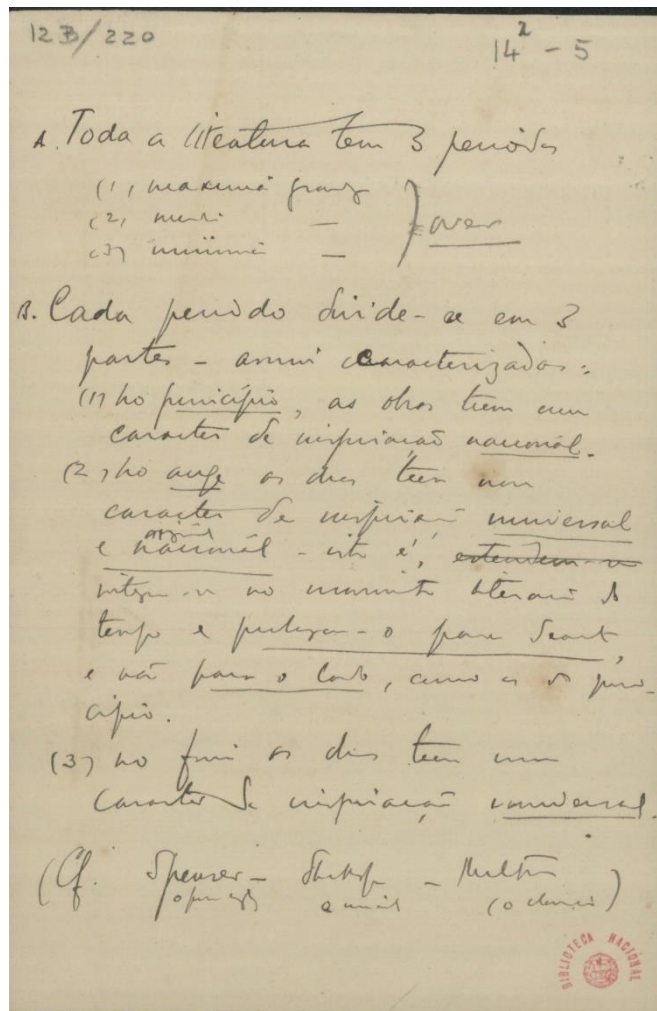 12B/220
14² - 5
A. Toda a literatura tem 3 periodos
(1) maxima grandeza
(2) media —
(3) minima —
over
B. Cada periodo divide-se em 3
partes - assim caracterizadas:
(1) no principio, as obras teem um
caracter de inspiração nacional.
(2) no auge as obras teem um
caracter de inspiração universal
e nacional - isto é, estendem-se
integra-se no movimento literario do
tempo e prolonga-o para deante,
e não para o lado, como as do prin-
cipio.
(3) no fim as obras teem um
caracter de inspiração universal.
(Cf. Spenser - Shakesp - Milton
a
(o
)
BIBLIOTECA NACIONAL